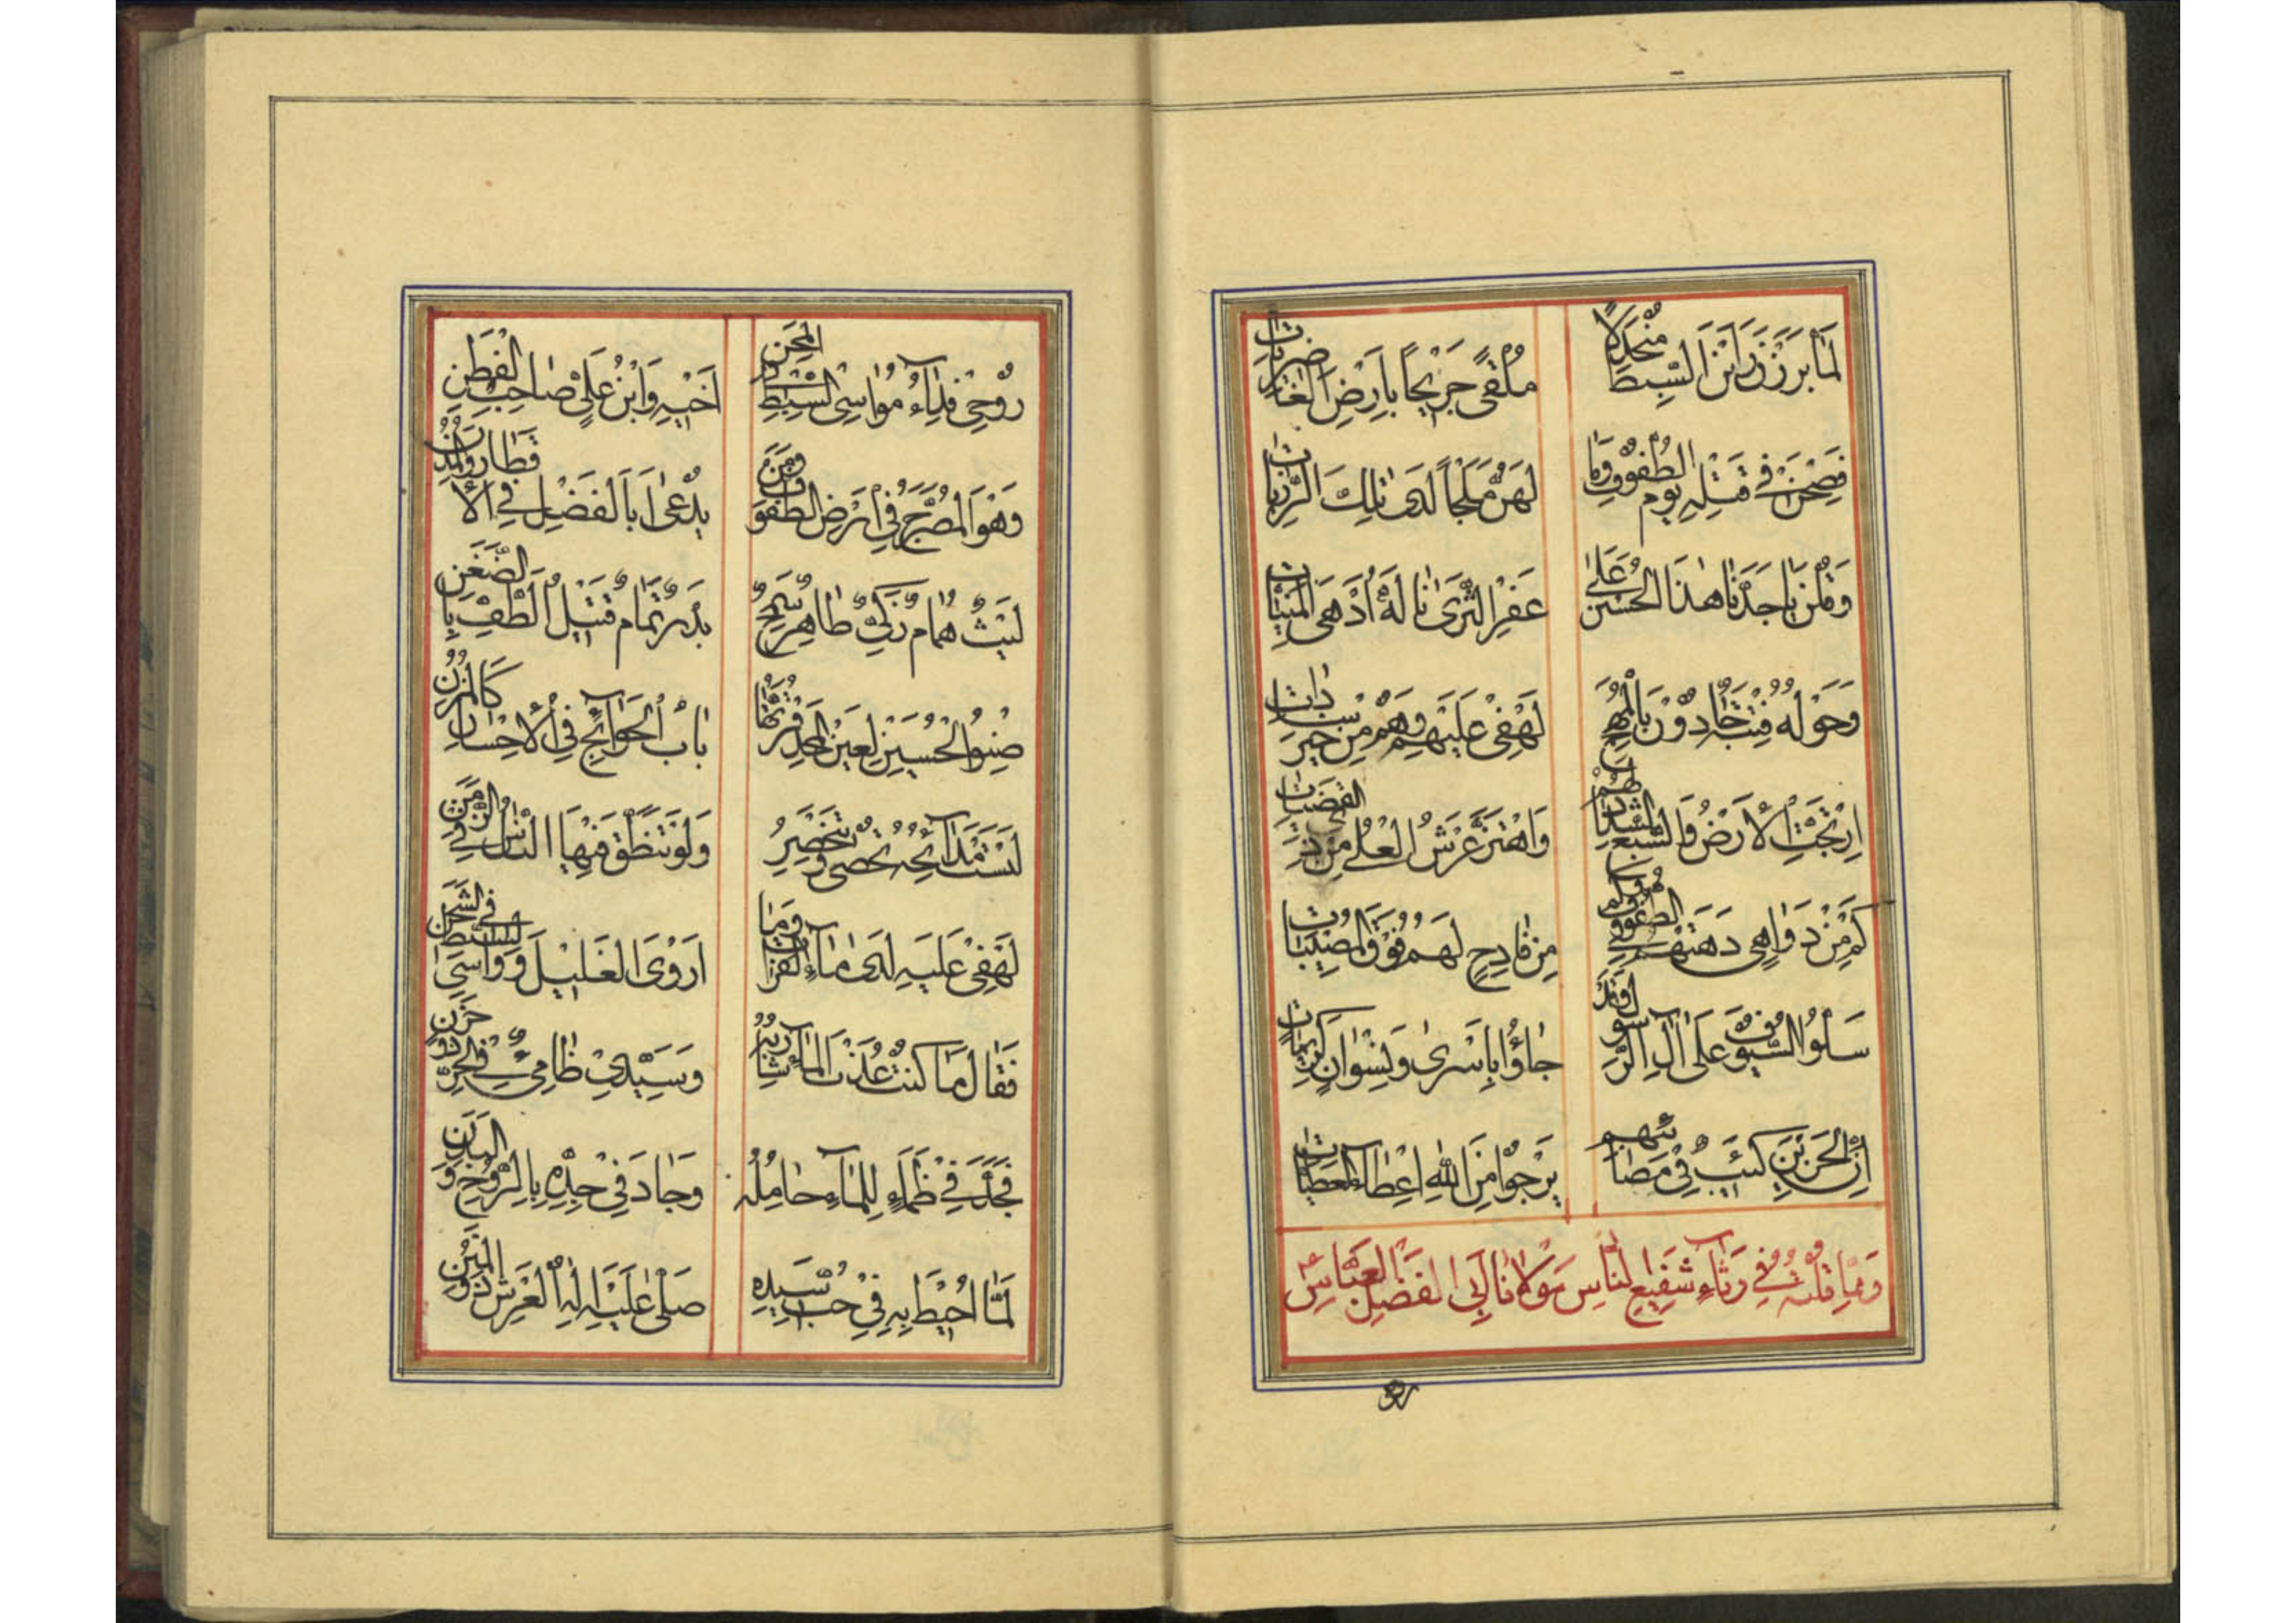 لَمَّا بَرَزْنَ رَأَيْنَ السِّبْطَ مُنْجَدِلًا
مُلْقًى جَرِيحًا بِأَرْضِ الْغَاضِرِيَّاتِ
فَصِحْنَ فِي قَتْلِهِ يَوْمَ الطُّفُوفِ وَمَا
لَهُنَّ مَلْجَأً لَدَى تِلْكَ الرَّزِيَّاتِ
وَقُلْنَ يَا جَدَّنَا هٰذَا الْحُسَيْنُ عَلَى
عَفْرِ الثَّرَى نَالَهُ أَدْهَى الْمَنِيَّاتِ
وَحَوْلَهُ فِتْيَةٌ جَادُوْنَ بِالْمُهَجِ
لَهْفِي عَلَيْهِمْ وَهُمْ مِنْ خَيْرِ سَادَاتِ
اِرْتَجَّتِ الْأَرْضُ وَالسَّبْعُ الشِّدَادُ لَهُمْ
وَاهْتَزَّ عَرْشُ الْعُلَى مِنْ ذِي الْقَضِيَّاتِ
كَمْ مِنْ دَوَاهِي دَهَتْهُمْ فِي الطُّفُوفِ وَكَمْ
مِنْ فَادِحٍ لَهُمْ فَوْقَ الْمُصِيبَاتِ
سَلُّوا السُّيُوفَ عَلَى آلِ الرَّسُولِ وَقَدْ
جَاؤُا بِأَسْرَى وَنِسْوَانٍ كَرِيمَاتِ
إِنَّ الْحَزِينَ كَئِيبٌ فِي مَصَائِبِهِمْ
يَرْجُوْ مِنَ اللّٰهِ إِعْطَاءَ الْعَطِيَّاتِ
وَمِمَّا قُلْتُهُ فِي رِثَاءِ شَفِيعِ النَّاسِ مَوْلَانَا أَبِي الْفَضْلِ الْعَبَّاسِ ع
رُوْحِي فِدَاءُ مُوَاسِى السِّبْطِ الْمِحَنِ
أَخِيهِ وَابْنُ عَلِيٍّ صَاحِبُ الْفِطَنِ
وَهُوَ الْمُضَرَّجُ فِي أَرْضِ الطُّفُوفِ وَمَنْ
يُدْعَى أَبَا الْفَضْلِ فِي الْأَقْطَارِ وَالْمُدُنِ
لَيْثٌ هُمَامٌ زَكِيٌّ طَاهِرٌ سَمِحٌ
بَدْرٌ تَمَامٌ قَتِيلُ الطَّفِّ بِالضَّغَنِ
صِنْوُ الْحُسَيْنِ لِعَيْنِ الْمَجْدِ قُرَّتُهَا
بَابُ الْحَوَائِجِ فِي الْإِحْسَانِ كَالْمُزُنِ
لَيْسَتْ مَدَائِحُهُ تُحْصَى وَتَنْحَصِرُ
وَلَوْ تَنَطَّقَ فِيهَا النَّاسُ فِي الزَّمَنِ
لَهْفِي عَلَيْهِ لَدَى مَاءِ الْفُرَاتِ وَمَا
أَرْوَى الْغَلِيلَ وَوَاسَى السِّبْطَ فِي الشَّجَنِ
فَقَالَ مَا كُنْتُ عَذْبَ الْمَاءِ شَارِبُهُ
وَسَيِّدِي ظَامِىءٌ فِي الْحَرِّ ذُوْ حَزَنٍ
فَجَدَّ فِي ظَمَاءٍ لِلْمَاءِ حَامِلُهُ
وَجَادَ فِي جِدِّهِ بِالرُّوْحِ وَالْبَدَنِ
لَمَّا أُحِيطَ بِهِ فِي حُبِّ سَيِّدِهِ
صَلَّى عَلَيْهِ إِلٰهُ الْعَرْشِ ذُو الْمِنَنِ